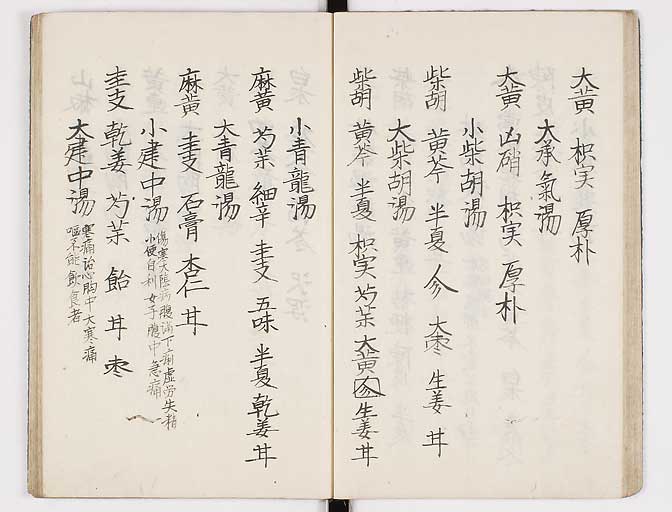 大黄 枳実 厚朴
大承氣湯
大黄 凶硝 枳実 厚朴
小柴胡湯
柴胡 黄芩 半夏 参 大棗 生姜 甘
大柴胡湯
柴胡 黄芩 半夏 枳実 芍薬 大黄 参 生姜 甘
小青龍湯
麻黄 芍薬 細辛 圭支 五味 半夏 乾姜 甘
大青龍湯
麻黄 圭支 石膏 杏仁 甘
小建中湯
傷寒大陰病腹満下痢虚労失精
小便自利 女子腹中急痛
圭支 乾姜 芍薬 飴 甘 棗
大建中湯
寒痛治心胸中大寒痛
嘔不能飲食者